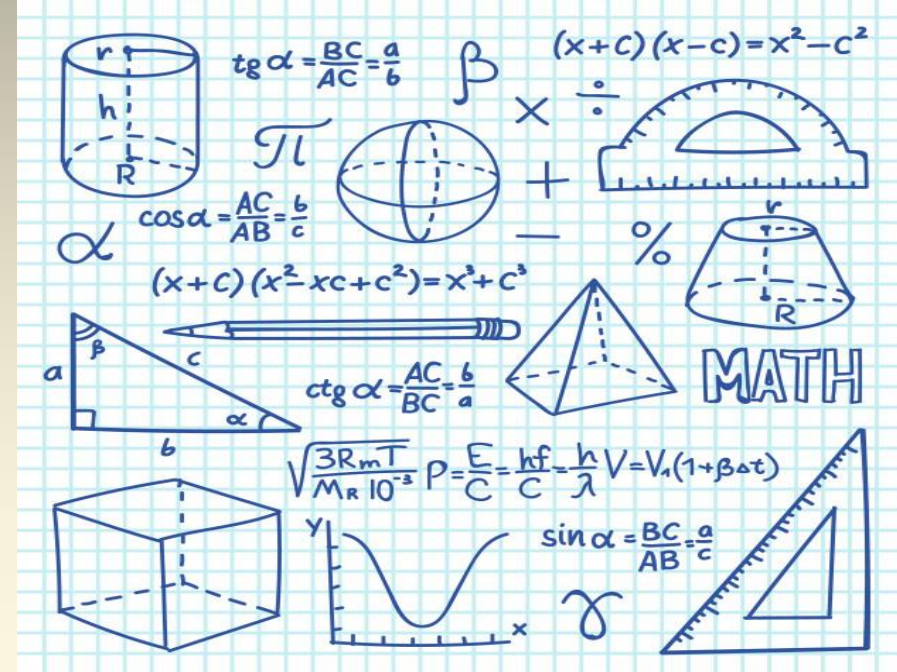 r
h
R
tg α = BC/AC = a/b
β
(x+c)(x-c)=x²-c²
× ÷
π
+
α
cosα = AC/AB = b/c
−
%
r
R
(x+c)(x²-xc+c²)=x³+c³
a
β
c
α
b
ctg α = AC/BC = b/a
MATH
√3RmT/MR 10⁻³ P=E/C=hf/C=h/λ V=V₁(1+βΔt)
Y
x
sin α = BC/AB = a/c
γ